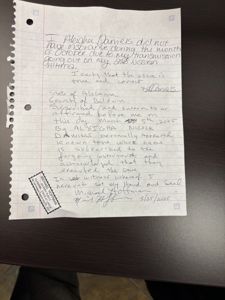 I Aleisha Daniels did not
have insurance during the month
of October due to my transmission
going out on my 2012 Nissan
Altima.
I certify that the above is
true and correct
State of Alabama
County of Baldwin
Subscribed and sworn to or
affirmed before me on
this day March 5th 2025
By ALEISHA NICOLE
DANIELS personally
known to me whose name
is subscribed to the
foregoing instrument and
acknowledged that they
executed the same
In witness whereof I
hereunto set my hand and seal
Michael